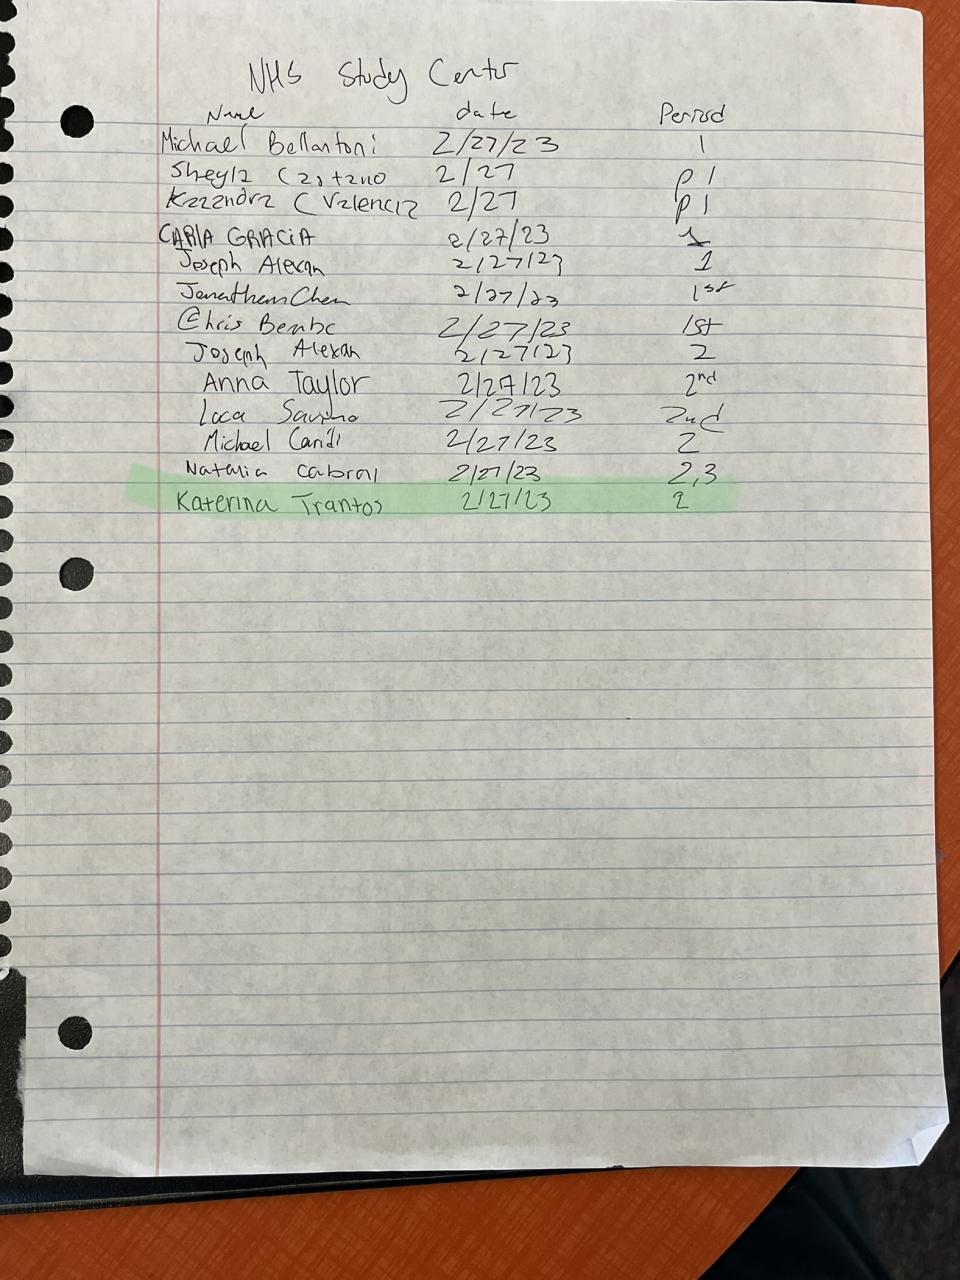 NHS Study Center
Name date Period
Michael Bellantoni 2/27/23 1
Sheyla Castano 2/27 p 1
Kazandra C Valencia 2/27 p 1
CARLA GRACIA 2/27/23 1
Joseph Alexan 2/27/23 1
Jonathan Chen 2/27/23 1st
Chris Bembe 2/27/23 1st
Joseph Alexan 2/27/23 2
Anna Taylor 2/27/23 2nd
Luca 2/27/23 2nd
Michael 2/27/23 2
Natalia Cabral 2/27/23 2,3
Katerina Trantos 2/27/23 2